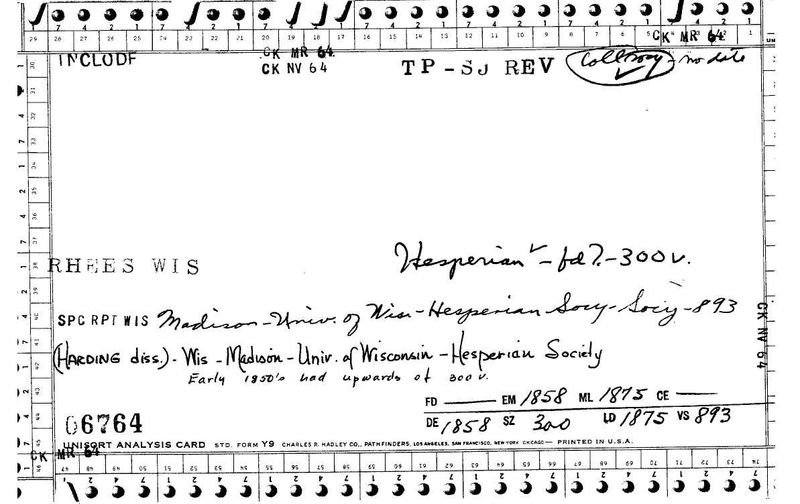 INCLUDE
CK MR 64
CK NV 64
TP-SJ REV
no date
CK MR 64
RHEES WIS
Hesperian - fd?. - 300 v.
SPC RPT WIS Madison - Univ. of Wis - Hesperian Socy - Socy - 893
(HARDING diss.) - Wis - Madison - Univ. of Wisconsin - Hesperian Society
Early 1850's had upwards of 300 v.
FD —— EM 1858 ML 1875 CE ——
DE 1858 SZ 300 LD 1875 VS 893
06764
UNISORT ANALYSIS CARD STD. FORM Y9 CHARLES R. HADLEY CO., PATHFINDERS, LOS ANGELES, SAN FRANCISCO, NEW YORK CHICAGO — PRINTED IN U.S.A.
CK MR 64
CK NV 64